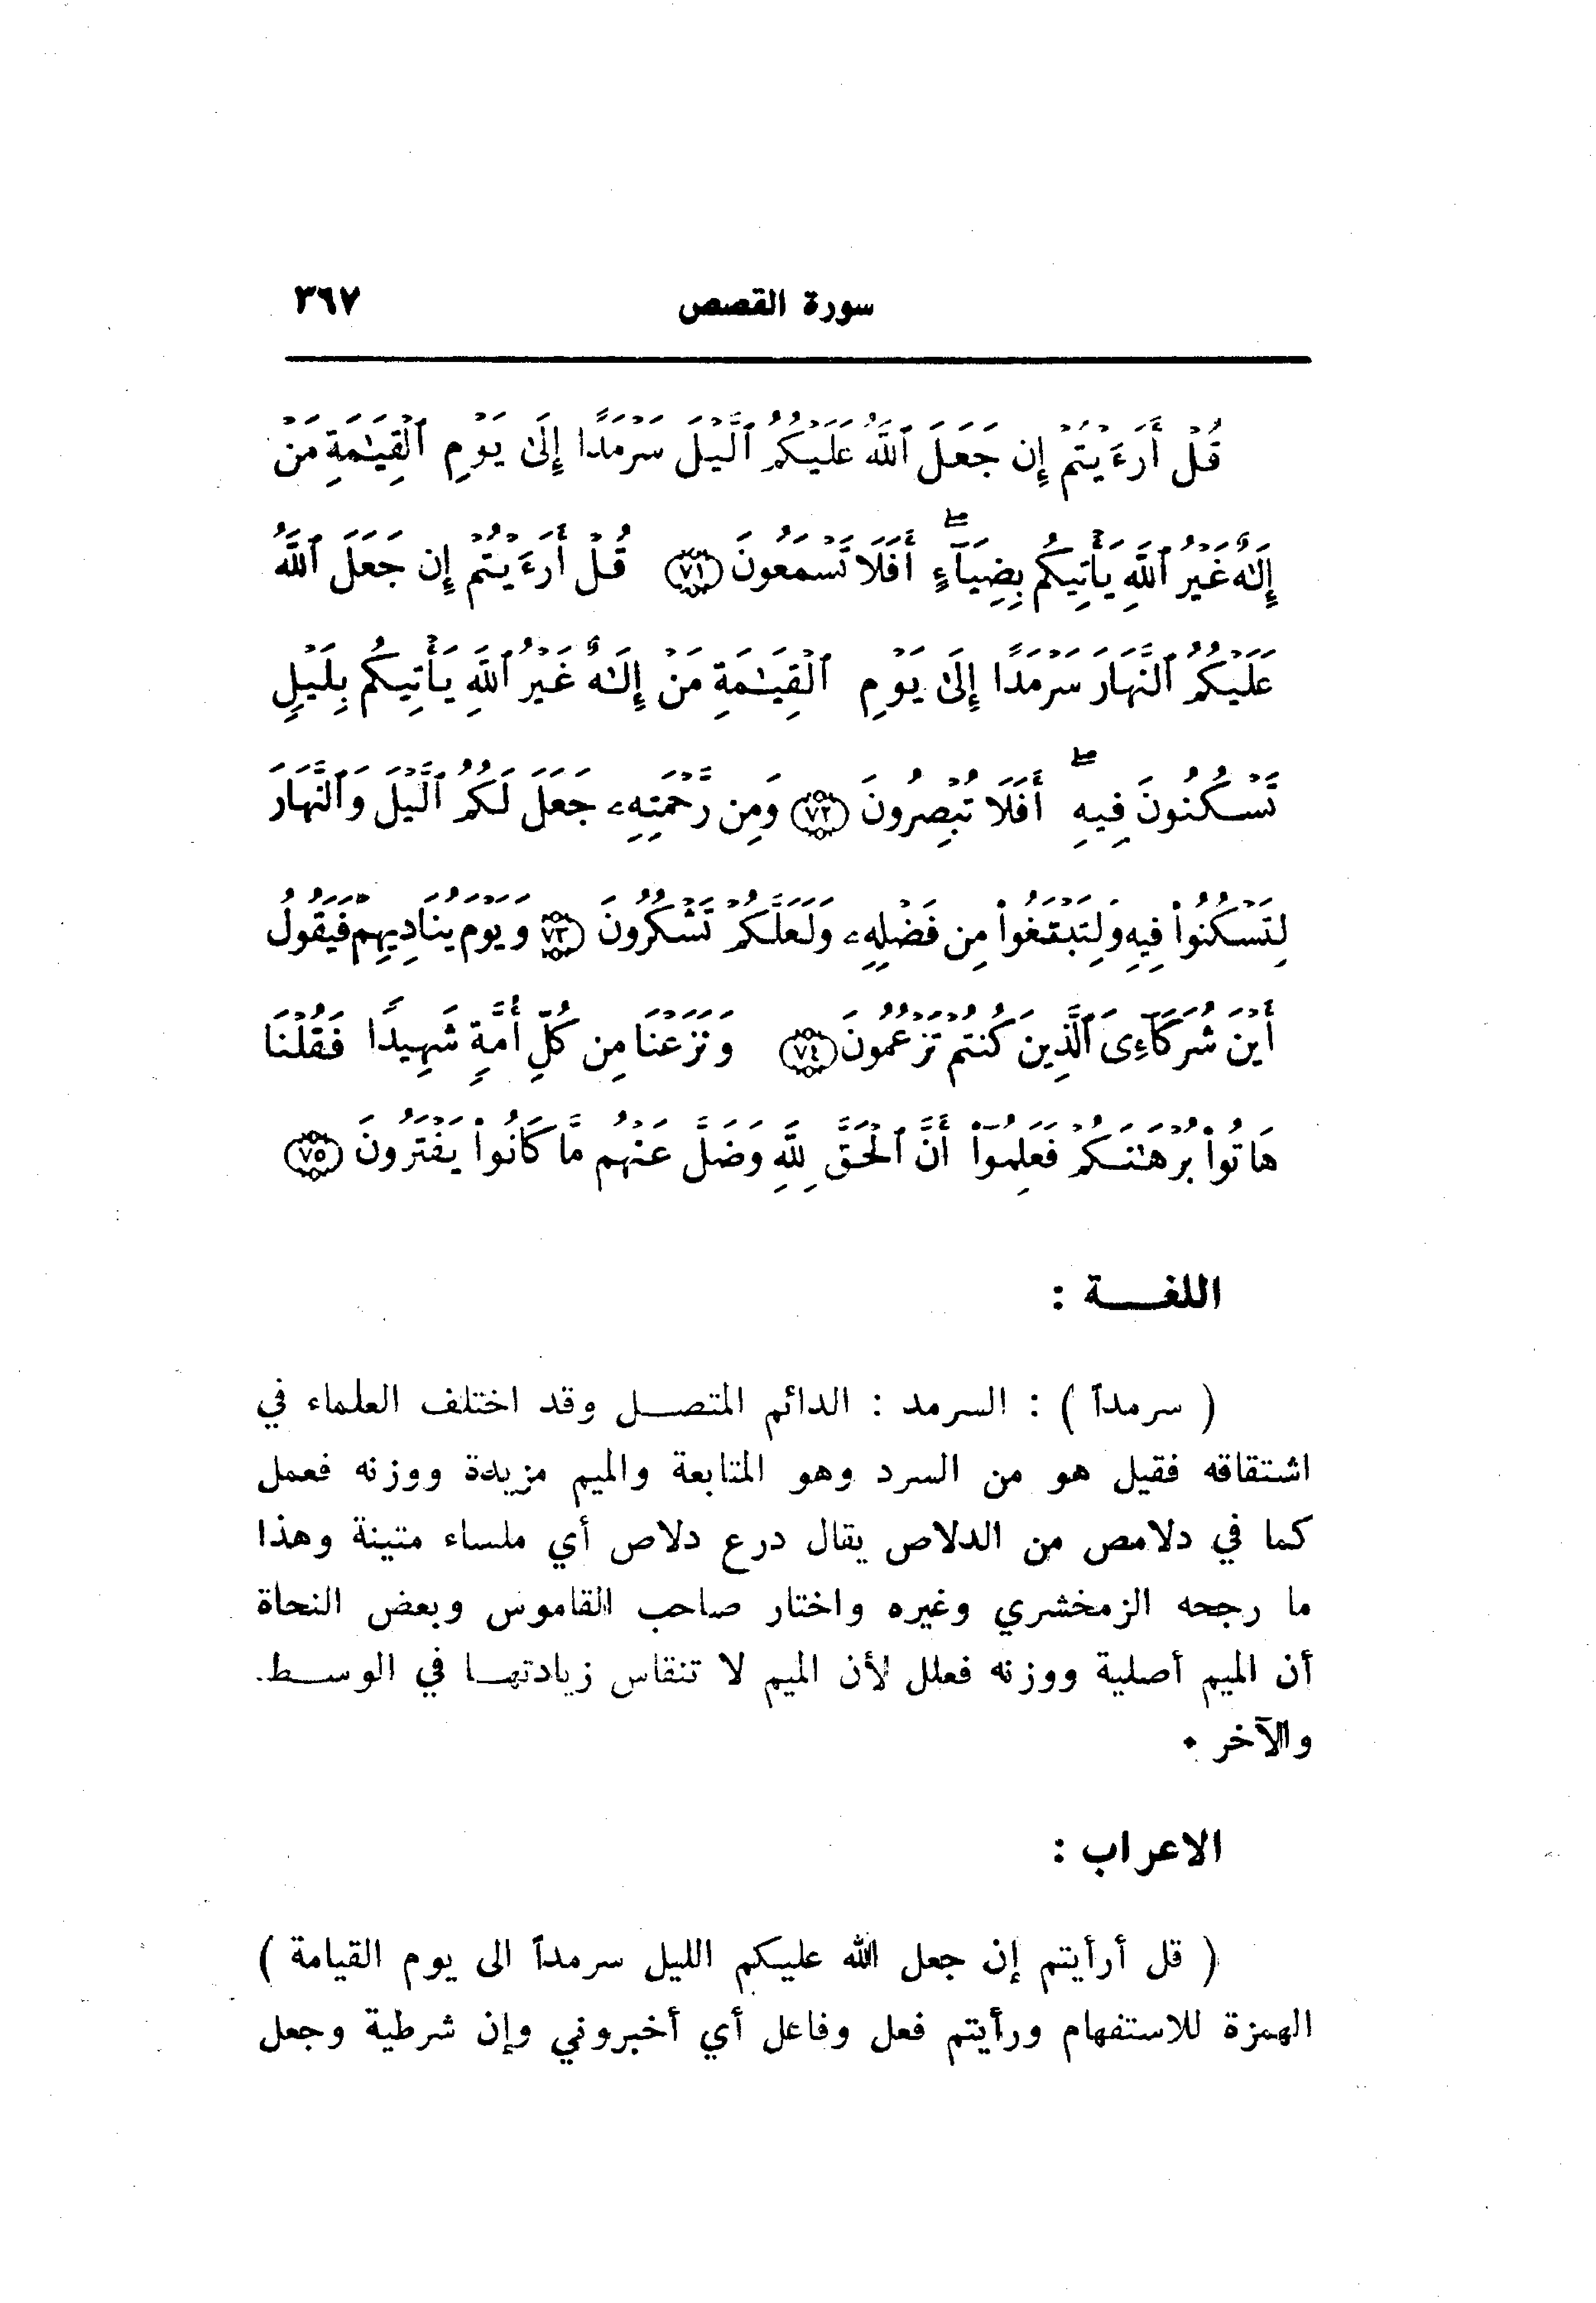 سورة القصص ٣٦٧
قُلْ أَرَءَيْتُمْ إِن جَعَلَ ٱللَّهُ عَلَيْكُمُ ٱلَّيْلَ سَرْمَدًا إِلَىٰ يَوْمِ ٱلْقِيَـٰمَةِ مَنْ
إِلَـٰهٌ غَيْرُ ٱللَّهِ يَأْتِيكُم بِضِيَآءٍ ۖ أَفَلَا تَسْمَعُونَ ﴿٧١﴾ قُلْ أَرَءَيْتُمْ إِن جَعَلَ ٱللَّهُ
عَلَيْكُمُ ٱلنَّهَارَ سَرْمَدًا إِلَىٰ يَوْمِ ٱلْقِيَـٰمَةِ مَنْ إِلَـٰهٌ غَيْرُ ٱللَّهِ يَأْتِيكُم بِلَيْلٍ
تَسْكُنُونَ فِيهِ ۖ أَفَلَا تُبْصِرُونَ ﴿٧٢﴾ وَمِن رَّحْمَتِهِۦ جَعَلَ لَكُمُ ٱلَّيْلَ وَٱلنَّهَارَ
لِتَسْكُنُوا۟ فِيهِ وَلِتَبْتَغُوا۟ مِن فَضْلِهِۦ وَلَعَلَّكُمْ تَشْكُرُونَ ﴿٧٣﴾ وَيَوْمَ يُنَادِيهِمْ فَيَقُولُ
أَيْنَ شُرَكَآءِىَ ٱلَّذِينَ كُنتُمْ تَزْعُمُونَ ﴿٧٤﴾ وَنَزَعْنَا مِن كُلِّ أُمَّةٍ شَهِيدًا فَقُلْنَا
هَاتُوا۟ بُرْهَـٰنَكُمْ فَعَلِمُوٓا۟ أَنَّ ٱلْحَقَّ لِلَّهِ وَضَلَّ عَنْهُم مَّا كَانُوا۟ يَفْتَرُونَ ﴿٧٥﴾
اللغـــة :
( سرمداً ) : السرمد : الدائم المتصـل وقد اختلف العلماء في
اشتقاقه فقيل هو من السرد وهو المتابعة والميم مزيدة ووزنه فعمل
كما في دلامص من الدلاص يقال درع دلاص أي ملساء متينة وهذا
ما رجحه الزمخشري وغيره واختار صاحب القاموس وبعض النحاة
أن الميم أصلية ووزنه فعلل لأن الميم لا تنقاس زيادتهـا في الوسـط.
والآخر •
الاعراب :
( قل أرأيتم إن جعل الله عليكم الليل سرمداً الى يوم القيامة )
الهمزة للاستفهام ورأيتم فعل وفاعل أي أخبروني وإن شرطية وجعل